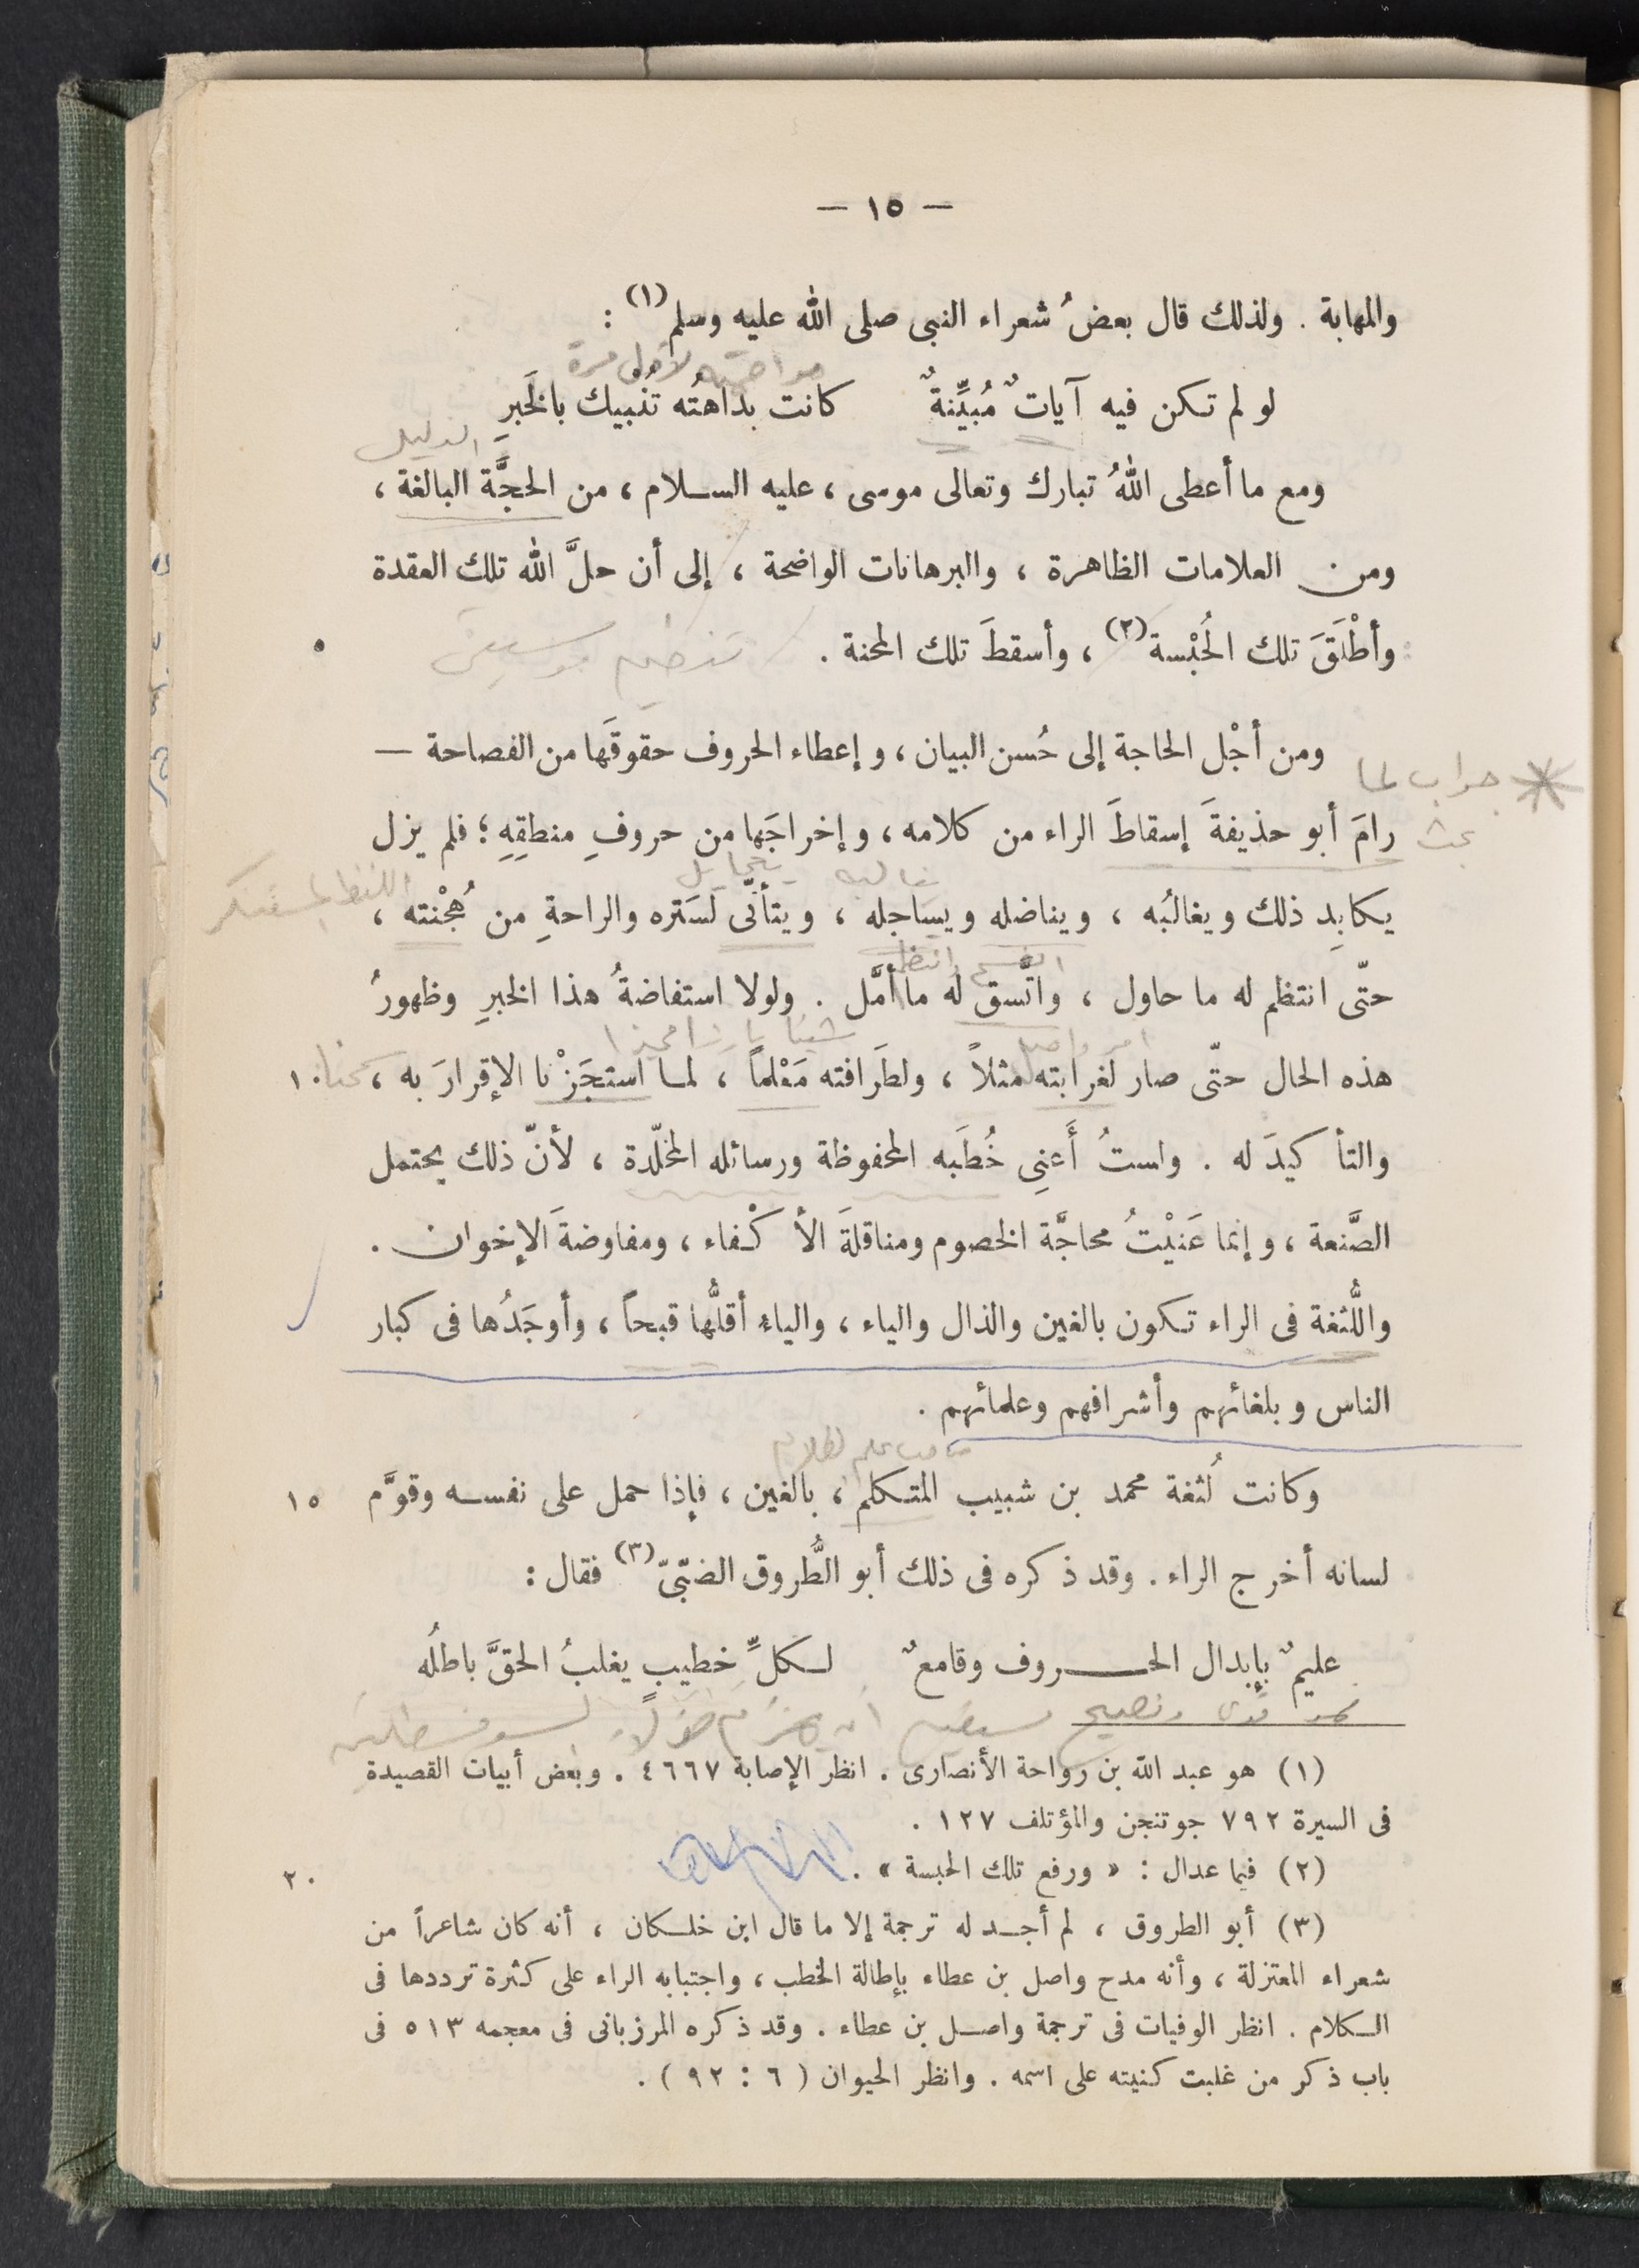 — ١٥ —
والمهابة . ولذلك قال بعضُ شعراء النبى صلى الله عليه وسلم(١) :
لأول مرة
لو لم تكن فيه آياتٌ مُبيِّنةٌ كانت بداهتُه تُنْبيك بالخَبرِ
الدليل
ومع ما أعطى اللهُ تبارك وتعالى موسى ، عليه السلام ، من الحجَّة البالغة ،
ومن العلامات الظاهرة ، والبرهانات الواضحة ، إلى أن حلَّ الله تلك العقدة
وأطْلَقَ تلك الحُبْسة(٢) ، وأسقطَ تلك المحنة .
ومن أجْل الحاجة إلى حُسن البيان ، وإعطاء الحروف حقوقَها من الفصاحة —
جواب لما
رامَ أبو حذيفةَ إسقاطَ الراء من كلامه ، وإخراجَها من حروفِ منطقِهِ ؛ فلم يزل
بحث
يكابِد ذلك ويغالبُه ، ويناضله ويساجله ، ويتأتّى لسَتره والراحةِ من هُجْنته ،
حتّى انتظم له ما حاول ، واتَّسق له ما أمَّل . ولولا استفاضةُ هذا الخبرِ وظهورُ
هذه الحال حتّى صار لغرابته مثلاً ، ولطَرافته مَعْلماً ، لما استجَزْنا الإقرارَ به ، ١٠
والتأكيدَ له . ولستُ أَعنِى خُطَبه المحفوظة ورسائله المخلّدة ، لأنّ ذلك يحتمل
الصَّنعة ، وإنما عَنيْتُ محاجَّة الخصوم ومناقلةَ الأكْفاء ، ومفاوضةَ الإخوان .
واللُّثغة فى الراء تكون بالغين والذال والياء ، والياء أقلُّها قبحاً ، وأوجَدُها فى كبار
الناس وبلغائهم وأشرافهم وعلمائهم .
صاحب علم الكلام
وكانت لُثغة محمد بن شبيب المتكلم ، بالغين ، فإذا حمل على نفسه وقوَّم ١٥
لسانه أخرج الراء . وقد ذكره فى ذلك أبو الطُّروق الضبّىّ(٣) فقال :
عليمٌ بإبدال الحروف وقامعٌ لكلِّ خطيبٍ يغلبُ الحقَّ باطلُه
(١) هو عبد الله بن رواحة الأنصارى . انظر الإصابة ٤٦٦٧ . وبعض أبيات القصيدة
فى السيرة ٧٩٢ جوتنجن والمؤتلف ١٢٧ .
(٢) فيما عدا ل : « ورفع تلك الحبسة » . ٢٠
(٣) أبو الطروق ، لم أجد له ترجمة إلا ما قال ابن خلكان ، أنه كان شاعراً من
شعراء المعتزلة ، وأنه مدح واصل بن عطاء بإطالة الخطب ، واجتنابه الراء على كثرة ترددها فى
الكلام . انظر الوفيات فى ترجمة واصل بن عطاء . وقد ذكره المرزبانى فى معجمه ٥١٣ فى
باب ذكر من غلبت كنيته على اسمه . وانظر الحيوان ( ٦ : ٩٢ ) .